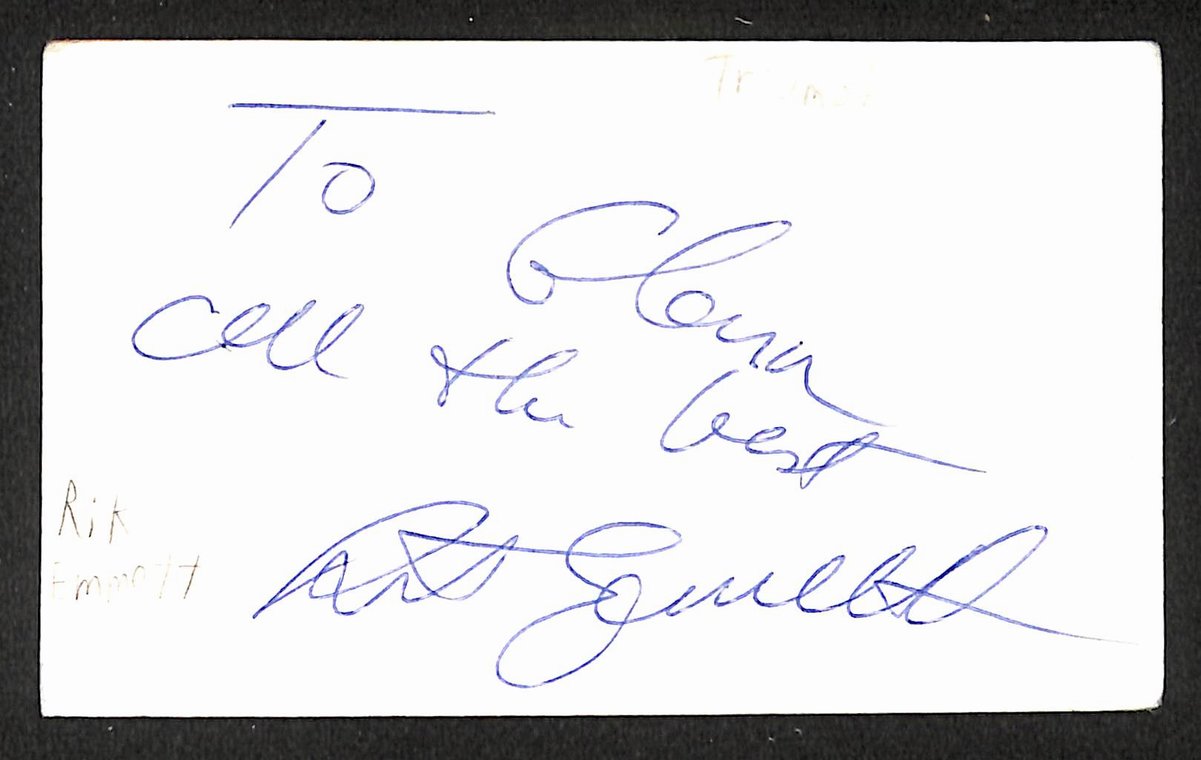 To
Glenn
all the best
Rik
Emmett
Rik Emmett